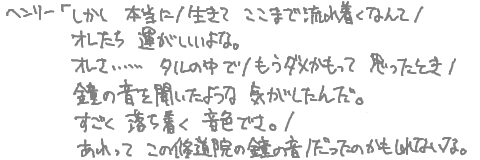 ヘンリー「しかし 本当に/生きて ここまで流れ着くなんて/
オレたち 運がいいよな。
オレさ…… タルの中で/もうダメかもって 思ったとき/
鐘の音を聞いたような 気がしたんだ。
すごく 落ち着く 音色でさ。/
あれって この修道院の鐘の音/だったのかもしれないな。